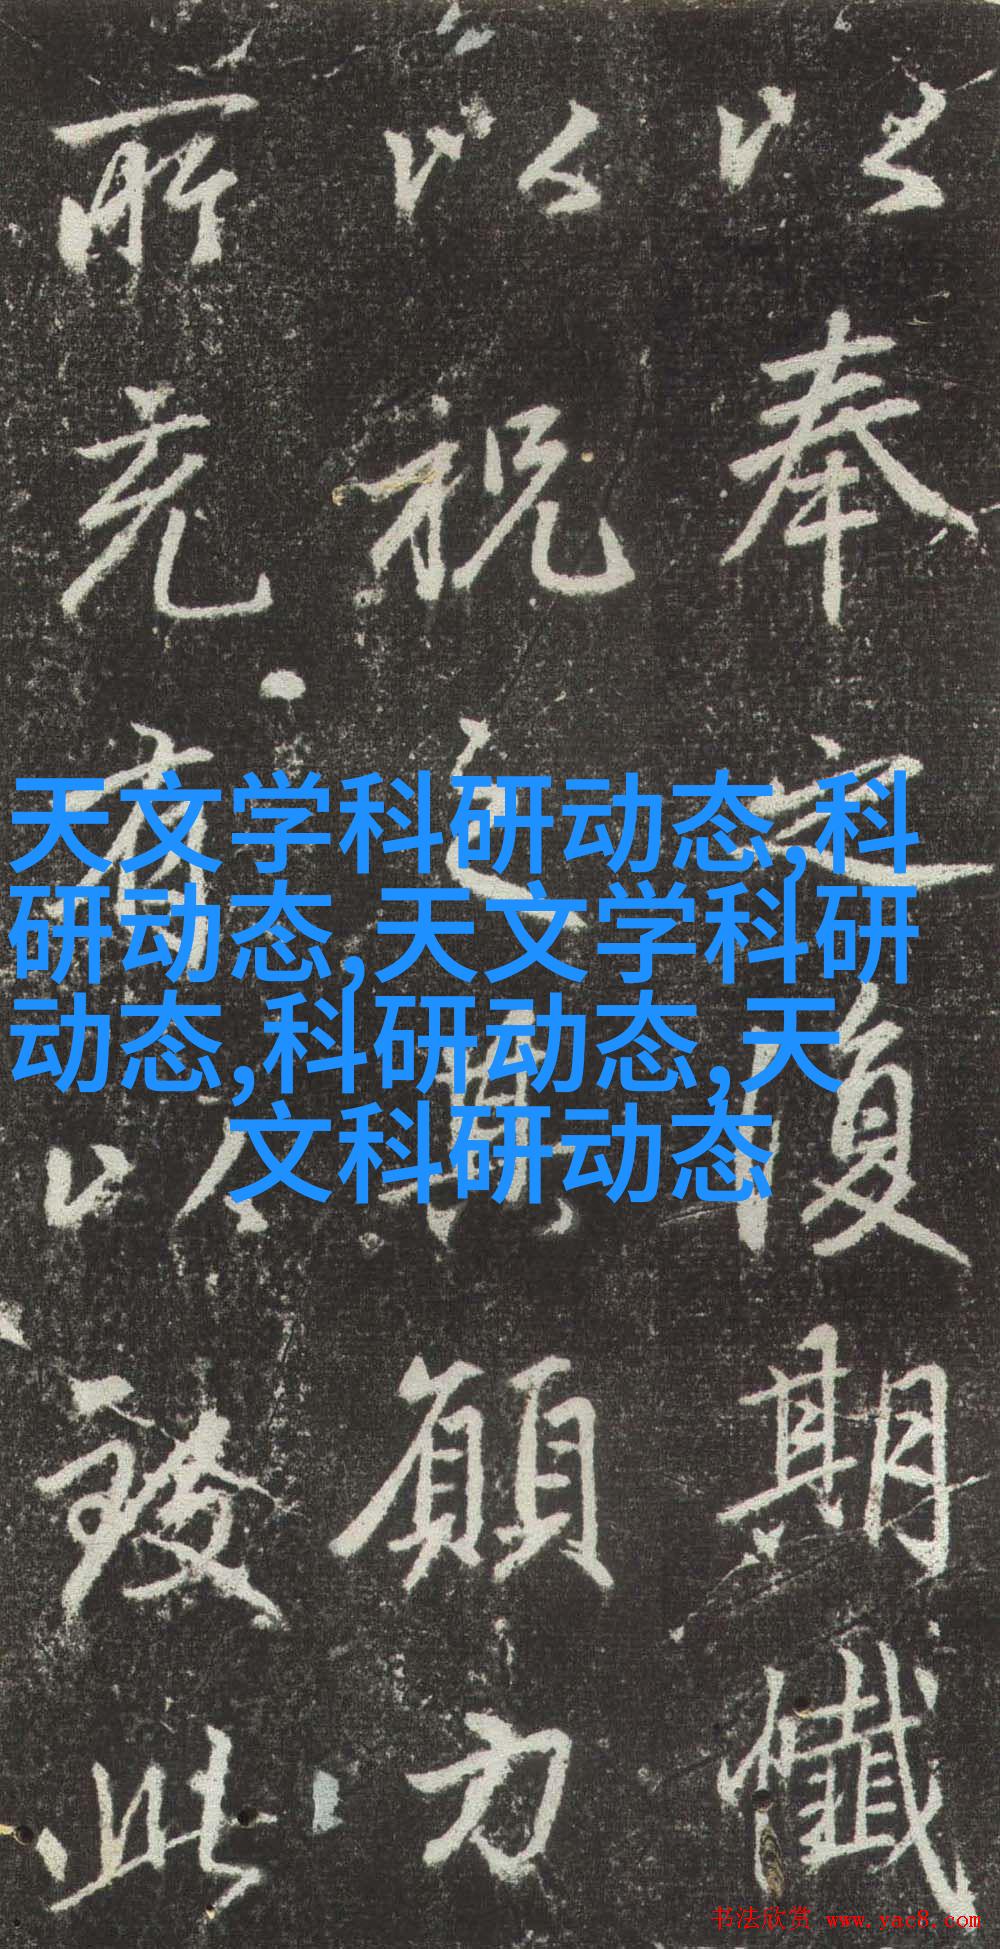 以奉之復期懺
以祝之其願力
所充有以致此
天文学科研动态,科
研动态,天文学科研
动态,科研动态,天
文科研动态
书法欣赏 www.yac8.com